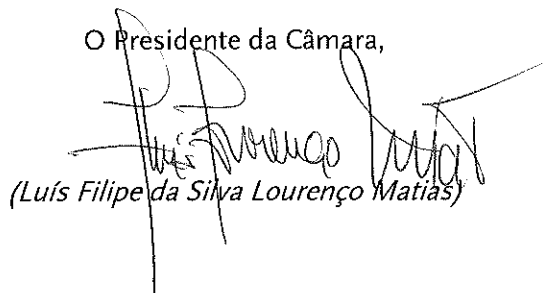 O Presidente da Câmara,
Luís Lourenço Matias
(Luís Filipe da Silva Lourenço Matias)